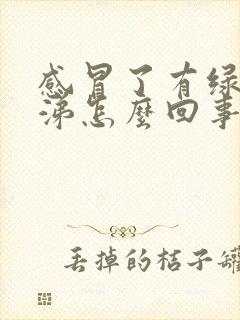 感冒了有绿
涕怎麼回事
丢掉的桔子罐